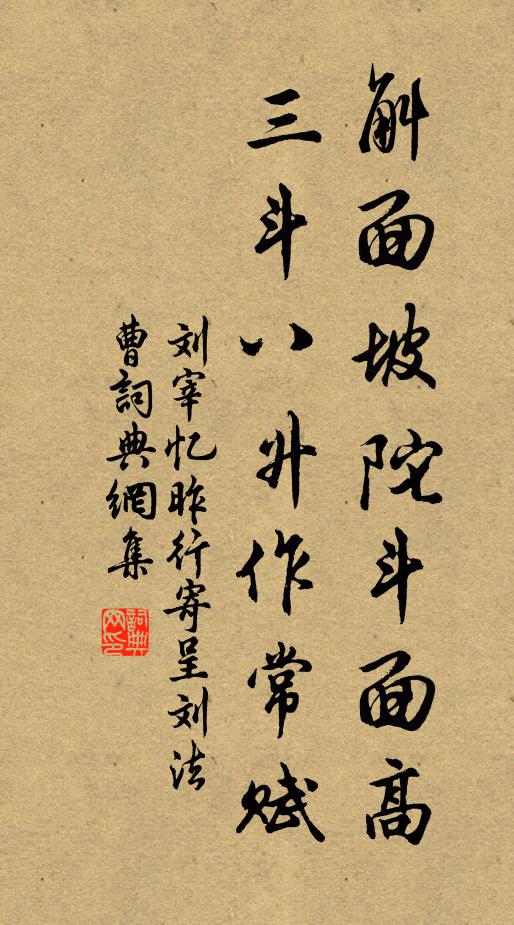 斛面坡陀斗面高
三斗八升作常赋
刘宰忆昨行寄呈刘法
曹詞典網集
詞典网印